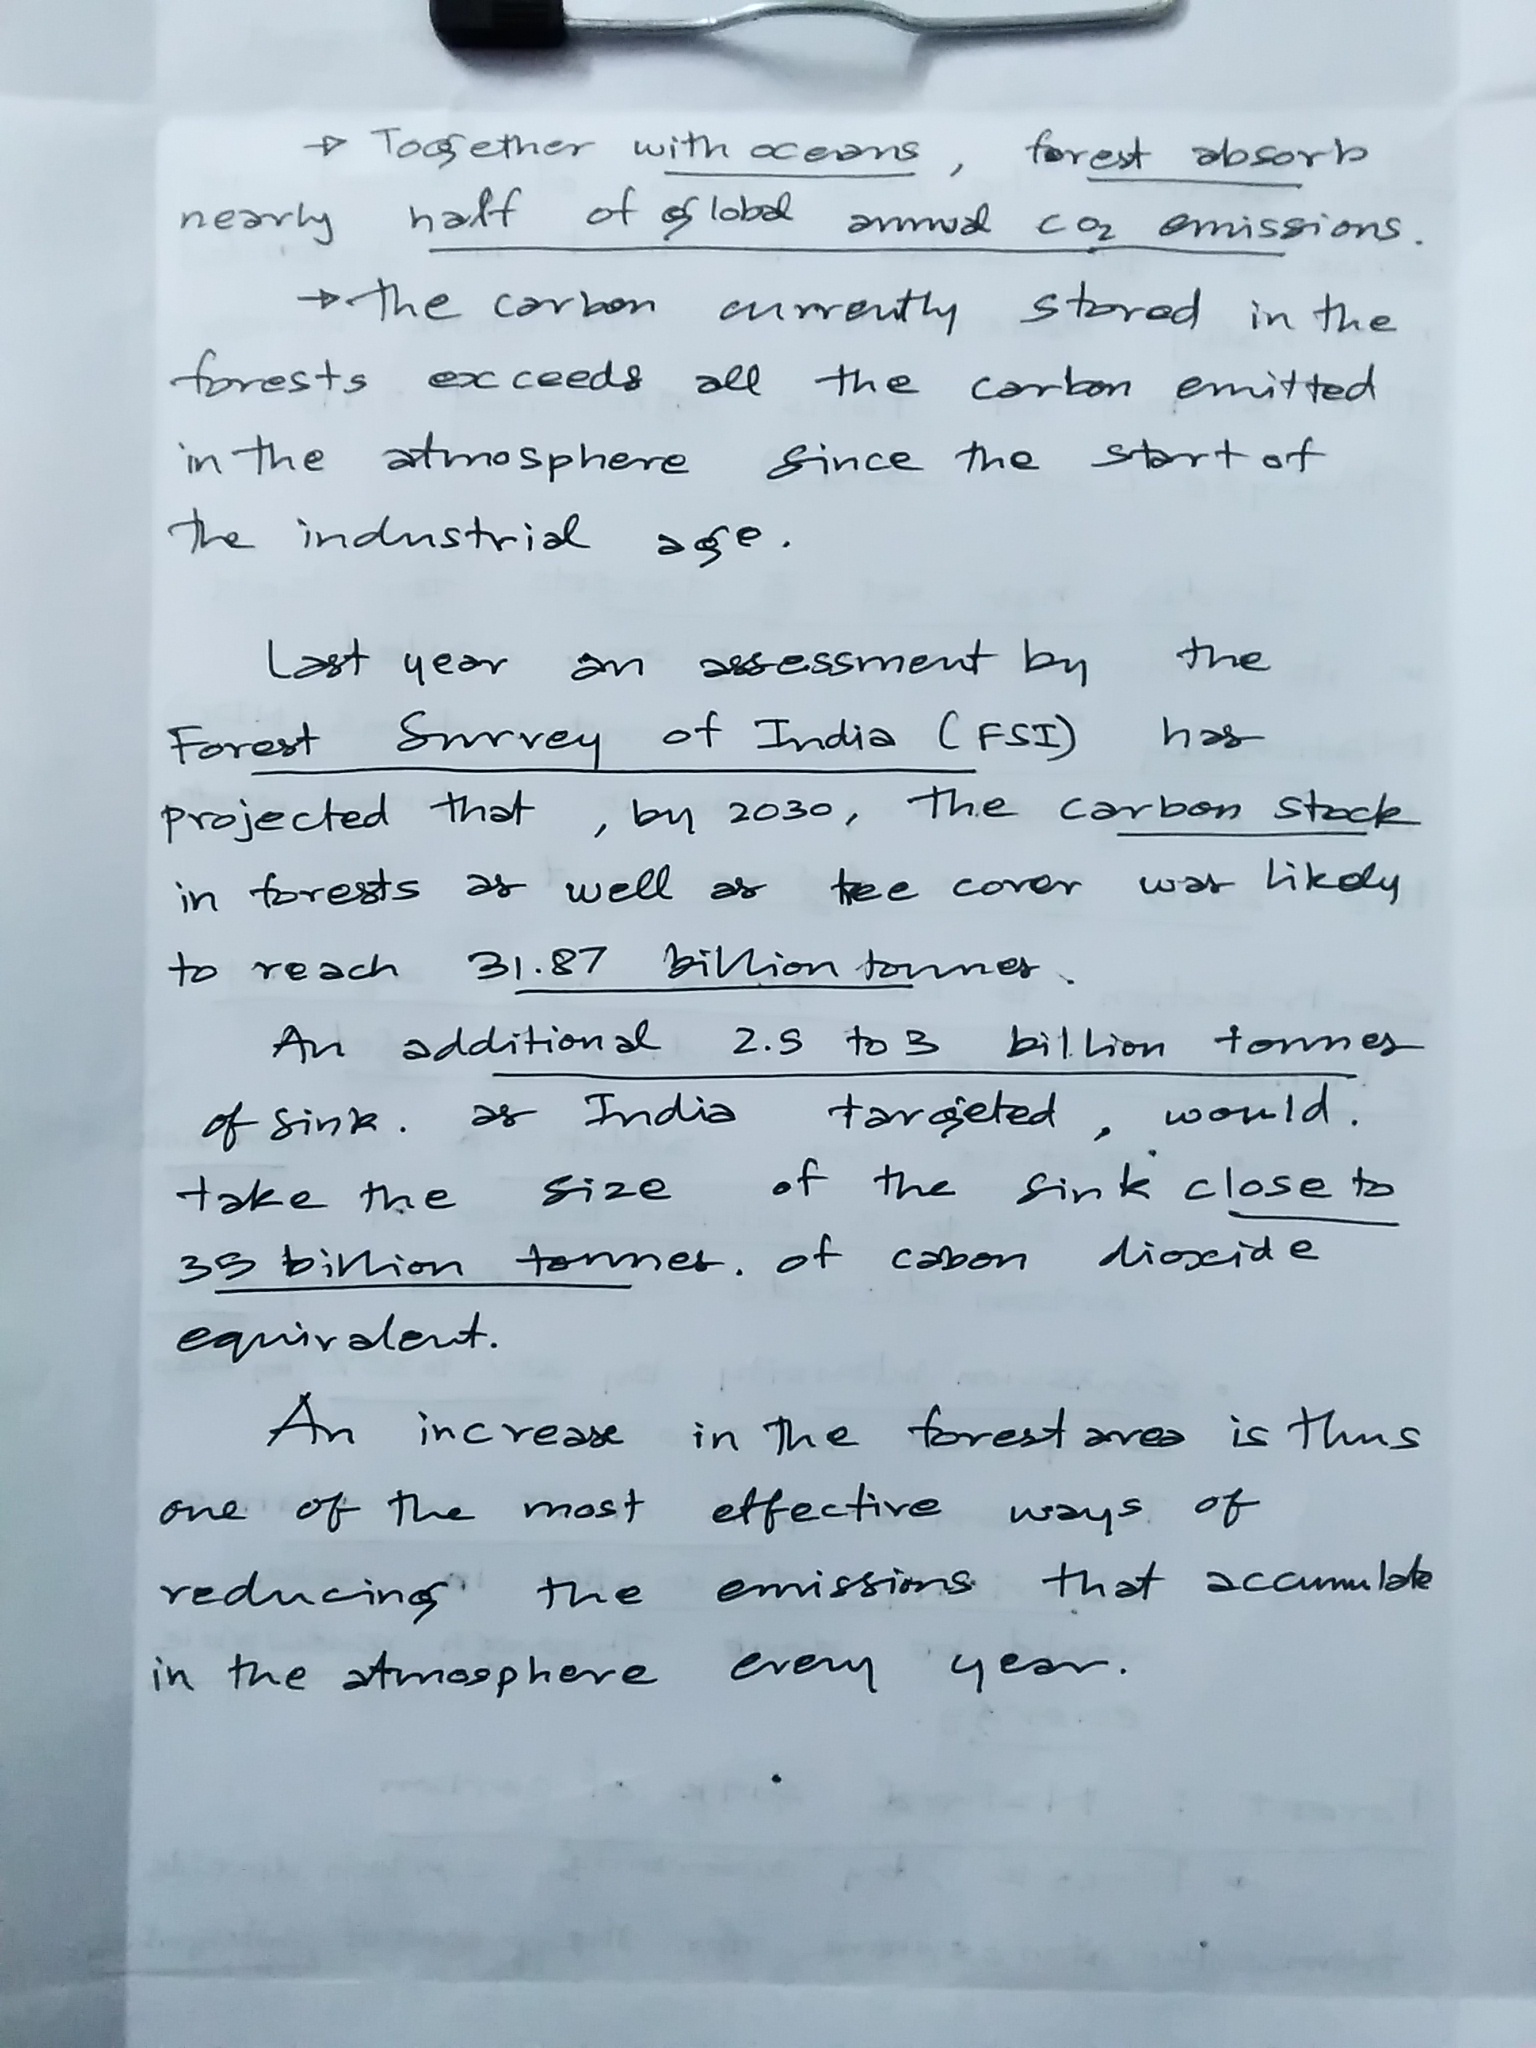 → Toogether with oceans, forest absorb
nearly half of global annual CO2 emissions.
→ the carbon currently stored in the
forests exceeds all the carbon emitted
in the atmosphere since the start of
the industrial age.
Last year an assessment by the
Forest Survey of India (FSI) has
projected that, by 2030, the carbon stock
in forests as well as tee cover was likely
to reach 31.87 billion tonnes.
An additional 2.5 to 3 billion tonnes
of sink. as India targeted, would.
take the size of the sink close to
35 billion tonnes. of cabon dioxide
equivalent.
An increase in the forest area is thus
one of the most effective ways of
reducing the emissions that accumulate
in the atmosphere every year.